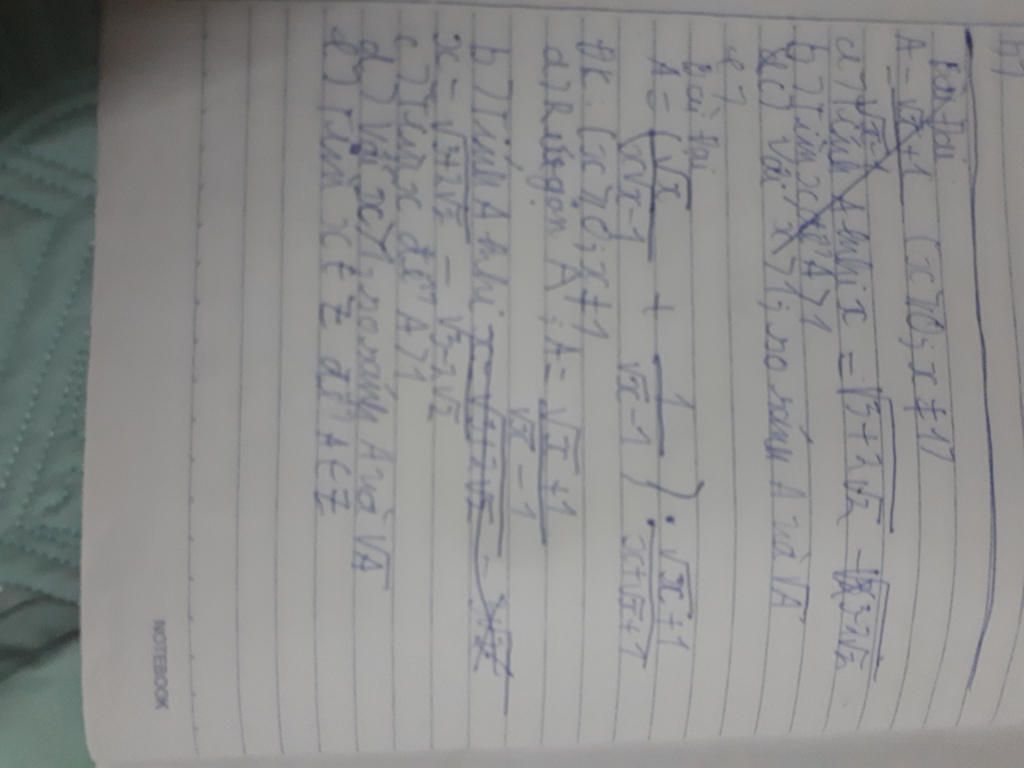 b)
Bài tại
A = √x+1 / √x-1 (x ≥ 0; x ≠ 1)
a) Tính A khi x = √3+2√2 - √3-2√2
b) Tìm x để A > 1
c) Với x > 1; so sánh A và √A
Bài tại
A = (√x / √x-1 + 1 / √x-1) : √x+1 / x+√x+1
ĐK: (x ≥ 0; x ≠ 1
a) Rút gọn A; A = √x+1 / √x-1
b) Tính A khi
x = √3+2√2 - √3-2√2
c) Tìm x để A > 1
d) Với x > 1, so sánh A và √A
e) Tìm x ∈ Z để A ∈ Z
NOTEBOOK